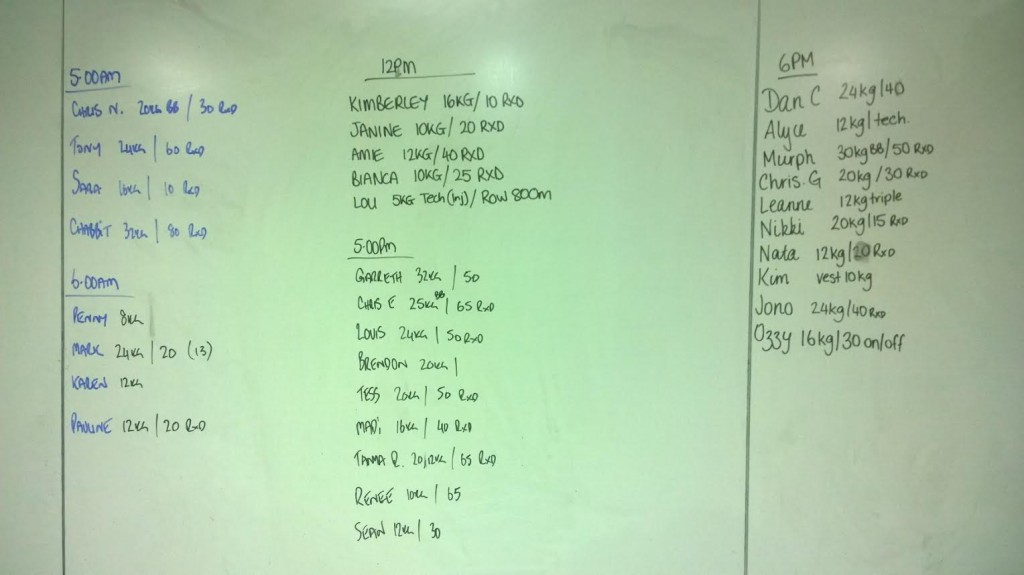 5:00AM
CHRIS N. 20KG BB / 30 RXD
TONY 24KG / 60 RXD
SARA 16KG / 10 RXD
CHABBIT 32KG / 80 RXD
6:00AM
PENNY 8KG
MARK 24KG / 20 (13)
KAREN 12KG
PAULINE 12KG / 20 RXD
12PM
KIMBERLEY 16KG / 10 RXD
JANINE 10KG / 20 RXD
AMIE 12KG / 40 RXD
BIANCA 10KG / 25 RXD
LOU 5KG TECH (INJ) / ROW 800m
5:00PM
GARRETH 32KG / 50
CHRIS E 25KG BB / 65 RXD
LOUIS 24KG / 50 RXD
BRENDON 20KG /
TESS 20KG / 50 RXD
MADI 16KG / 40 RXD
TAMA R. 20,12KG / 65 RXD
RENEE 10KG / 65
SEAN 12KG / 30
6PM
Dan C 24kg/40
Alyce 12kg/tech.
Murph 30kg BB/50 RXD
Chris.G 20kg/30 RXD
Leanne 12kg triple
Nikki 20kg/15 RXD
Nata 12kg/20 RXD
Kim vest 10kg
Jono 24kg/40 RXD
Ozzy 16kg/30 on/off